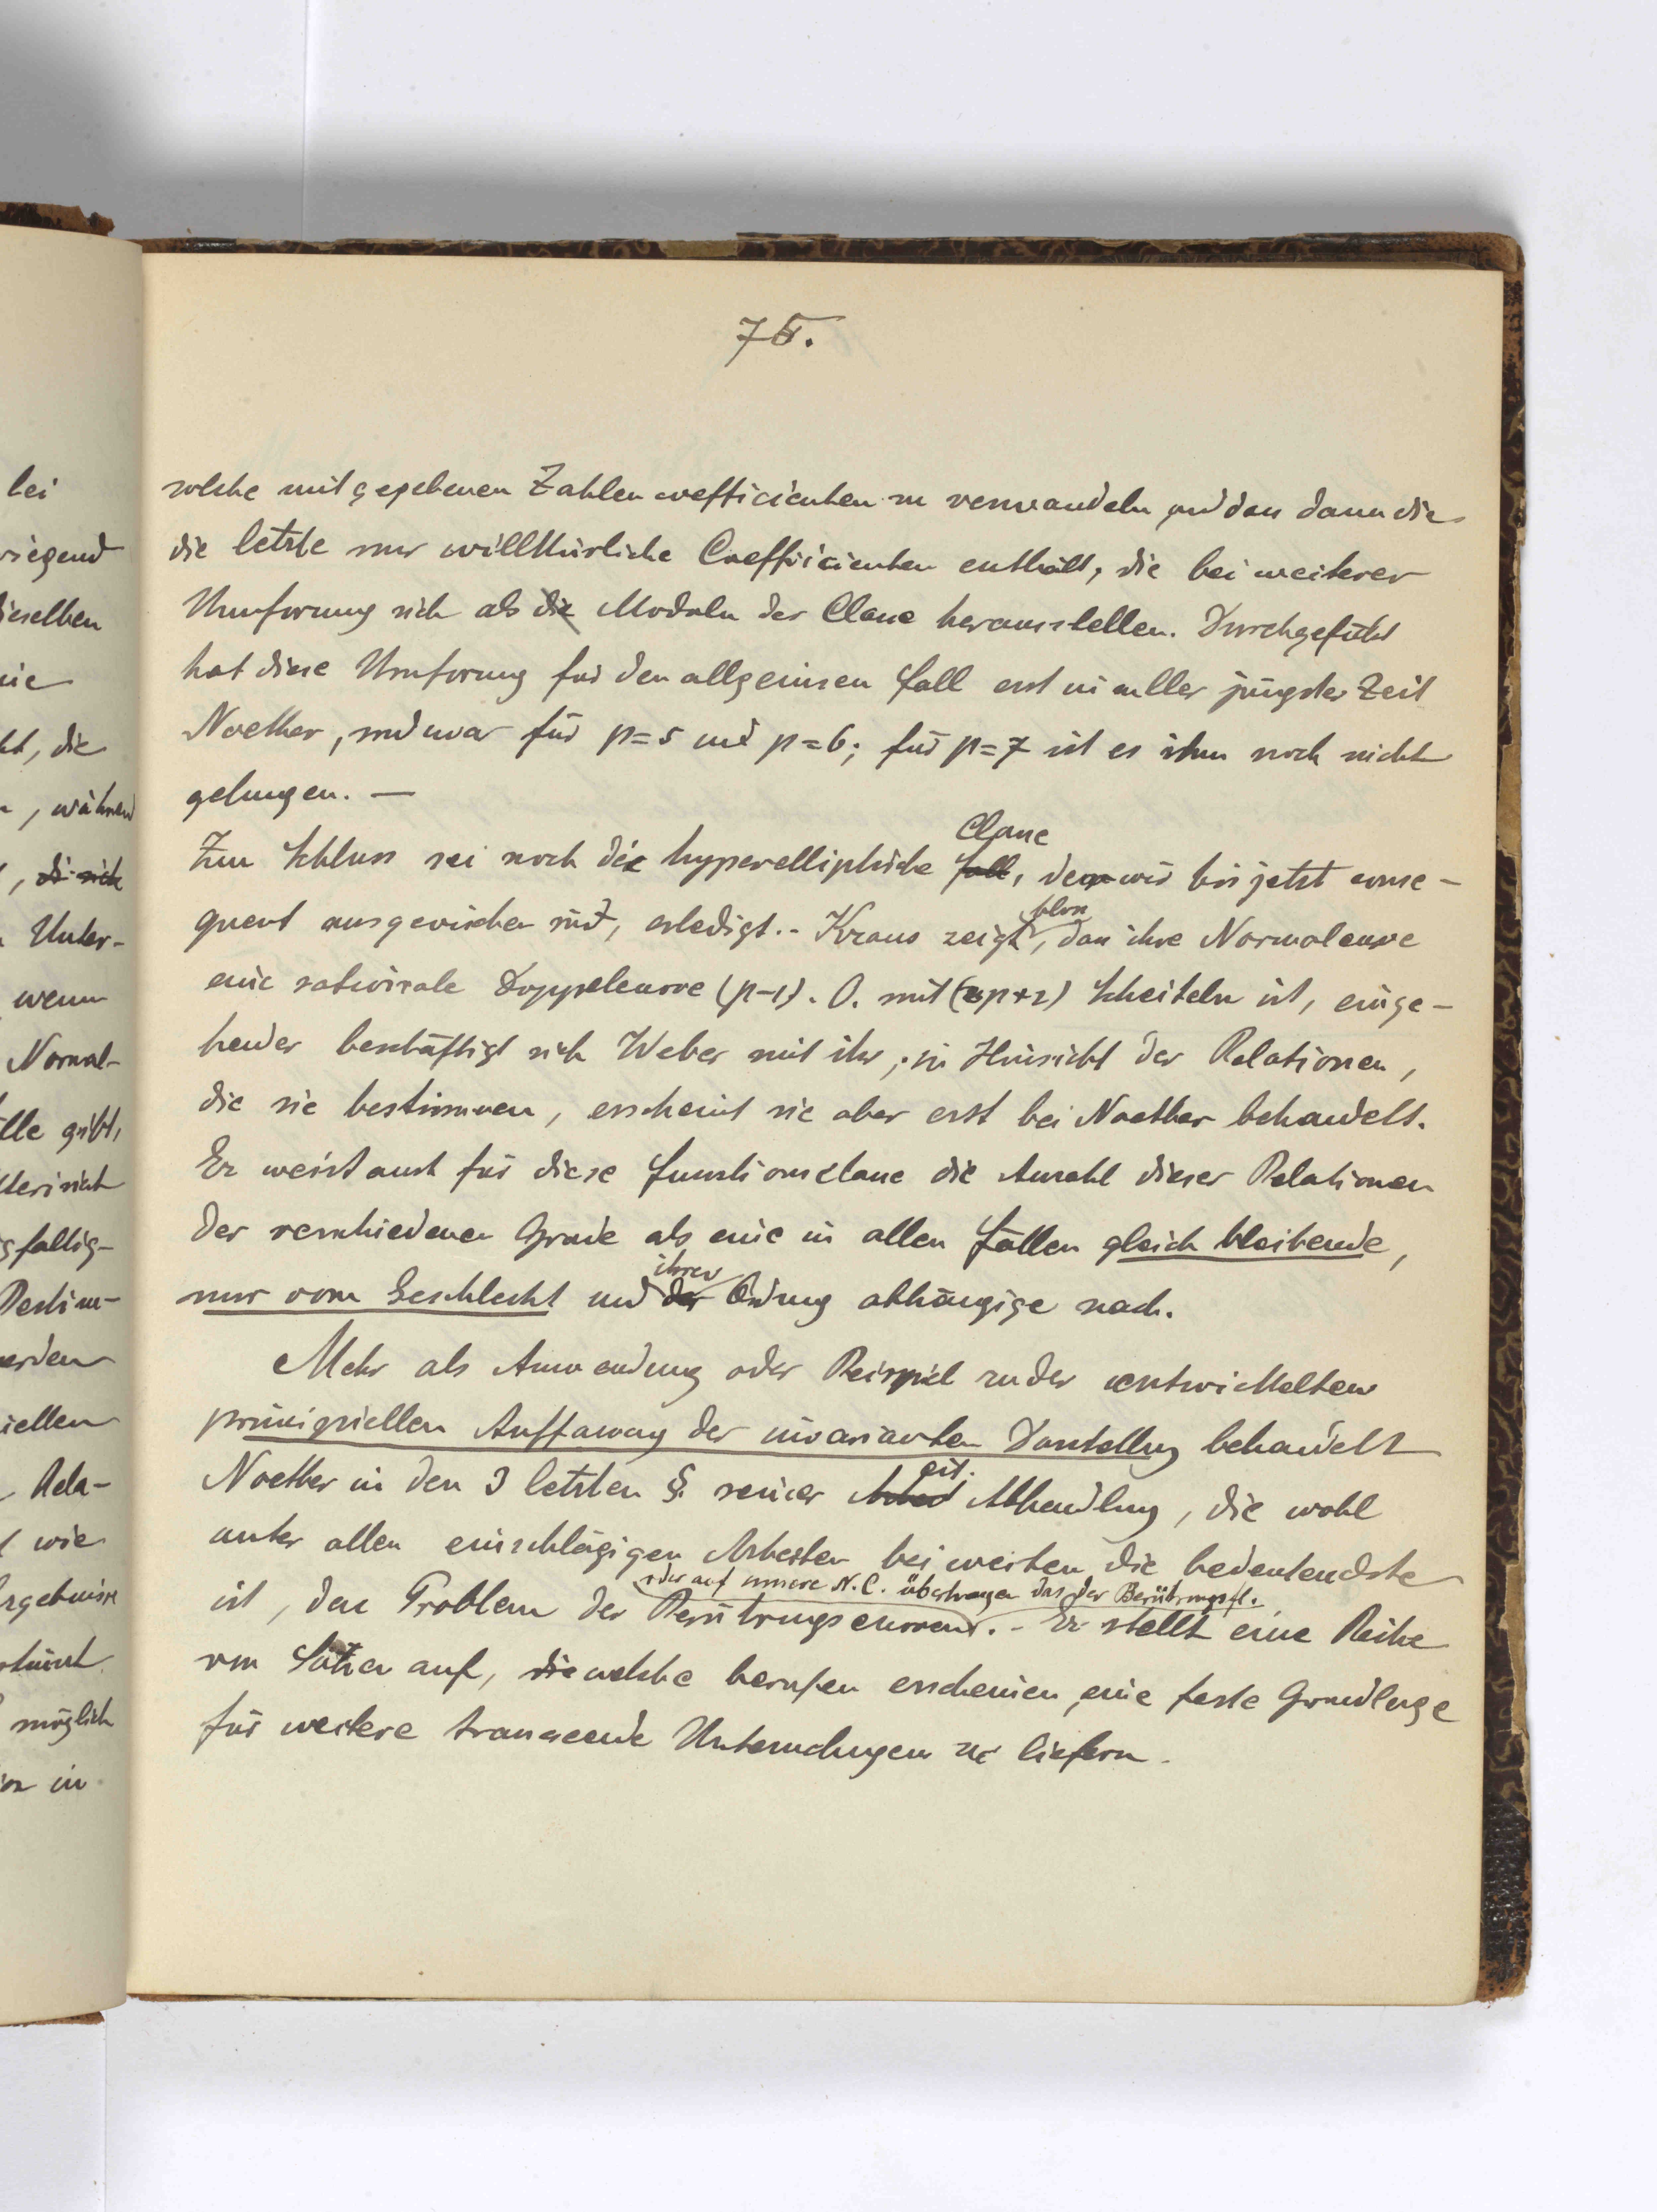 75.
solche mit gegebenen Zahlencoefficienten zu verwandeln, und dass dann die
die letzte nur willkürliche Coefficienten enthält, die bei weiterer
Umformung sich als die Moduln der Classe herausstellen. Durchgeführt
hat diese Umformung für den allgemeinen Fall erst in aller jüngster Zeit
Noether, und zwar für p=5 und p=6; für p=7 ist es ihm noch nicht
gelungen. —
Classe
Zum Schluss sei noch die hyperelliptische Fall, der wir bis jetzt conse-
quent ausgewichen sind, erledigt.- Kraus zeigt, dass ihre Normalcurve
bloss
eine rationale Doppelcurve (p-1). O. mit (2p+2) Scheiteln ist, einge-
hender beschäftigt sich Weber mit ihr; in Hinsicht der Relationen,
die sie bestimmen, erscheint sie aber erst bei Noether behandelt.
Er weist auch für diese Functionsclasse die Anzahl dieser Relationen
der verschiedenen Grade als eine in allen Fällen gleich bleibende,
ihrer
nur vom Geschlecht und der Ordnung abhängige nach.
Mehr als Anwendung oder Beispiel zu der entwickelten
prinzipiellen Auffassung der invarianten Darstellung behandelt
cit.
Noether in den 3 letzten §. seiner Arbeit Abhandlung, die wohl
unter allen einschlägigen Arbeiten bei weiten die bedeutendste
oder auf unsere N.C. übertragen das der Berührungspt.
ist, das Problem der Berührungscurven. - Er stellt eine Reihe
von Sätzen auf, die welche berufen erscheinen, eine feste Grundlage
für weitere Untersuchungen zu liefern.
lei
riegend
dieselben
nie
, die
, während
, die sich
Unter-
wenn
Normal-
lle gibt,
gfaltig-
Bestim-
erden
iellen
Rela-
wie
rgebnisse
möglich
in